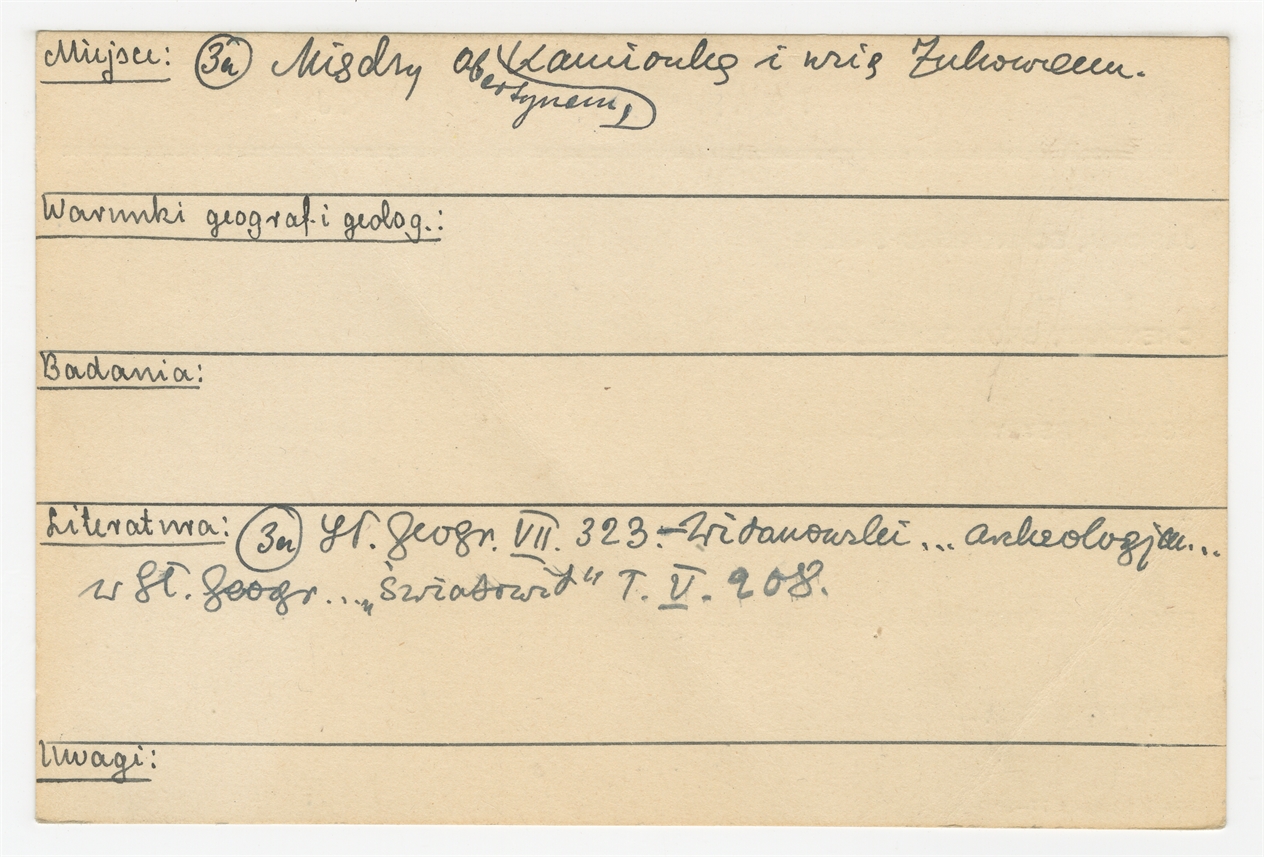 Miejsce: 3a Między Obertynem, Kamionką i wsią Żukowem.
Warunki geograf. i geolog.:
Badania:
Literatura: 3a Sł. Geogr. VII. 323. – Widanowski ... Archeologja ...
w Sł. Geogr. ... „Światowit" T. V. 208.
Uwagi: